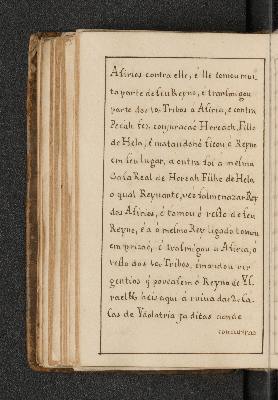 Asirios contra elle, e lle tomou mui-
ta parte de seu Reyno, e trasmigou
parte dos 10 Tribos a Asiria, e contra
Pecah fez conjuracaõ Hoseah, Filho
de Hela, e matandohó ficou o Reyno
em seu lugar, a outra foi a mesma
Casa Real de Hoseah Filho de Hela
o qual Reynante, veo Salmenazar Rey
dos Asirios, e tomou o resto de seu
Reyno, e a o mesmo Rey ligado tomou
em prizaõ, e trasmigou a Asiria, o
resto dos 10 Tribos, emandou vir
gentios q̃ povoasem o Reyno de Yś-
rael heis aqui a ruina das 2 Ca-
sas de Ydolatria ja ditas aonde
concurriraõ